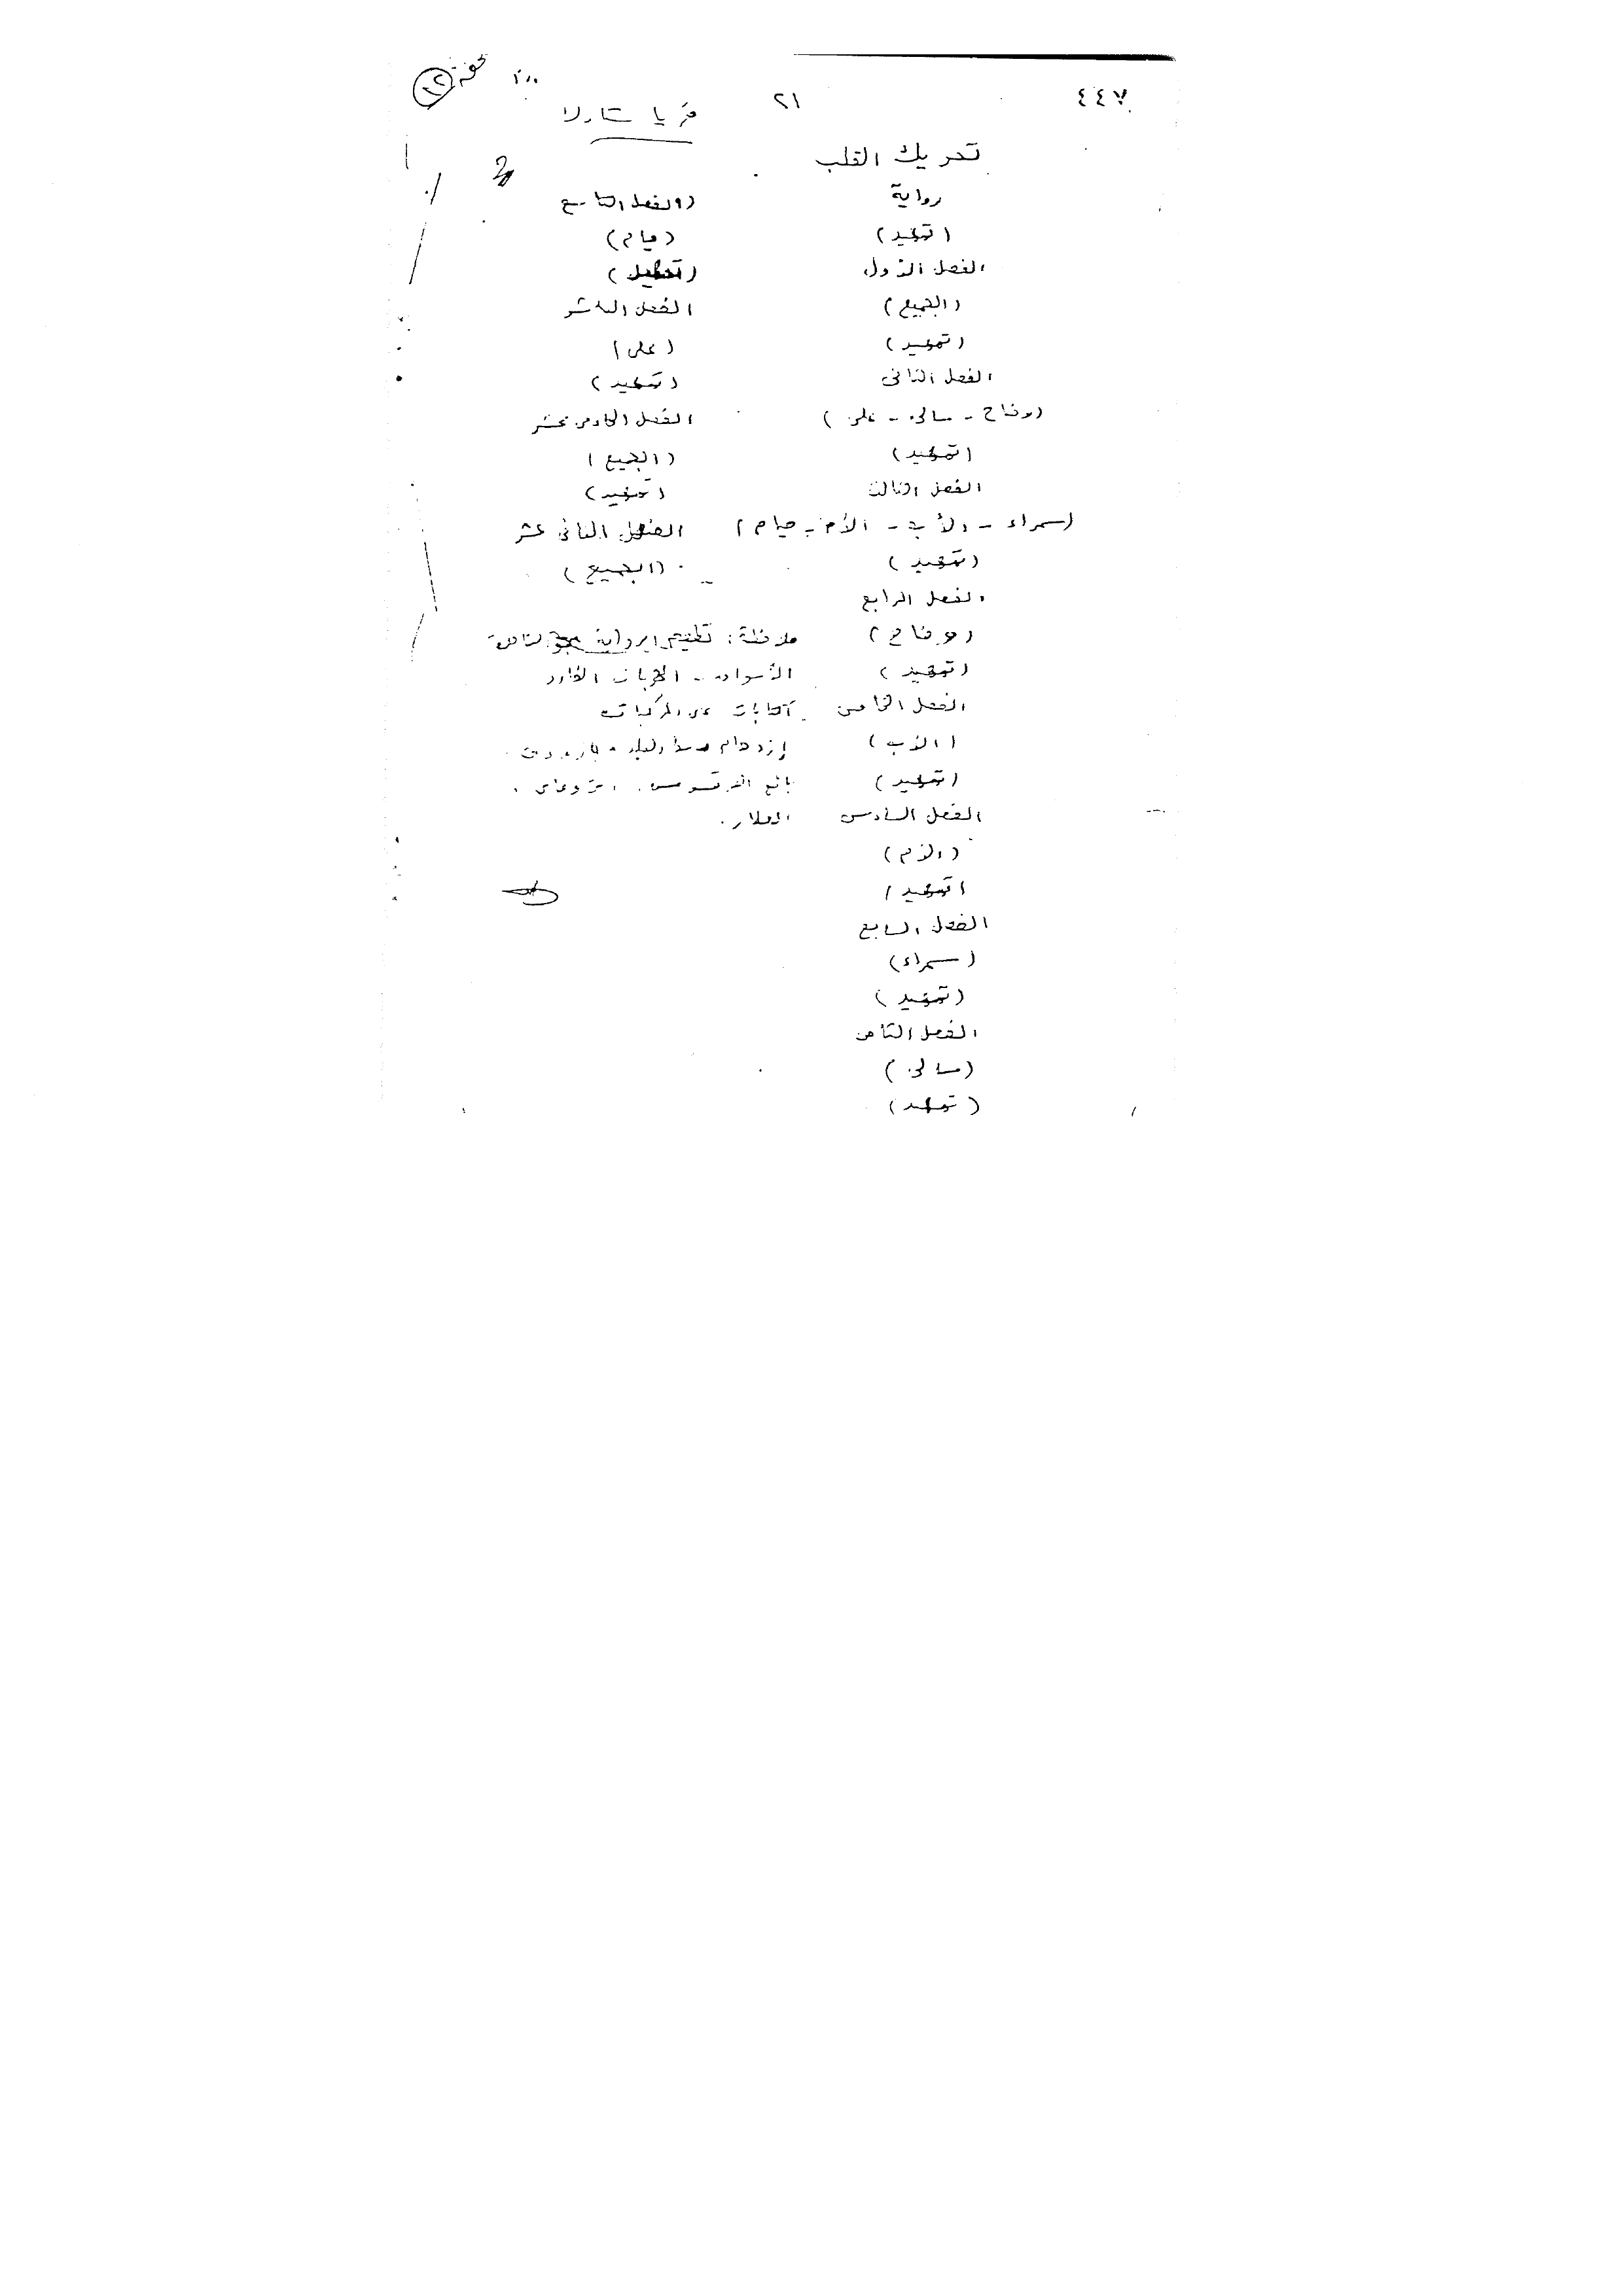 ٤٤٧
٢١
تحريك القلب
رواية
(تمهيد)
الفصل الأول
(الجميع)
(تمهيد)
الفصل الثانى
(وضاح - سالى - على)
(تمهيد)
الفصل الثالث
(سمراء - الأب - الأم - صيام)
(تمهيد)
الفصل الرابع
(وضاح)
(تمهيد)
الفصل الخامس
(الأب)
(تمهيد)
الفصل السادس
(الأم)
(تمهيد)
الفصل السابع
(سمراء)
(تمهيد)
الفصل الثامن
(سالى)
(تمهيد)
الفصل التاسع
(صيام)
الفصل العاشر
(على)
(تمهيد)
الفصل الحادى عشر
(الجميع)
(تمهيد)
الفصل الثانى عشر
(الجميع)
ملاحظة: تطعيم الرواية
الأسواق -
كتابات على المركبات
إزدحام وسط البلد
بائع العرقسوس